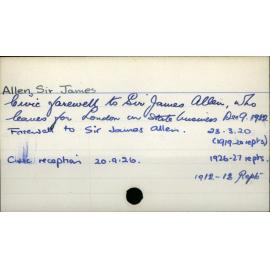 Allen, Sir James
Civic farewell to Sir James Allen, who
leaves for London on State business Dec 9. 1912
Farewell to Sir James Allen. 23.3.20
(1919-20 repts)
Civic reception 20.9.26. 1926-27 repts.
1912-13 Rept